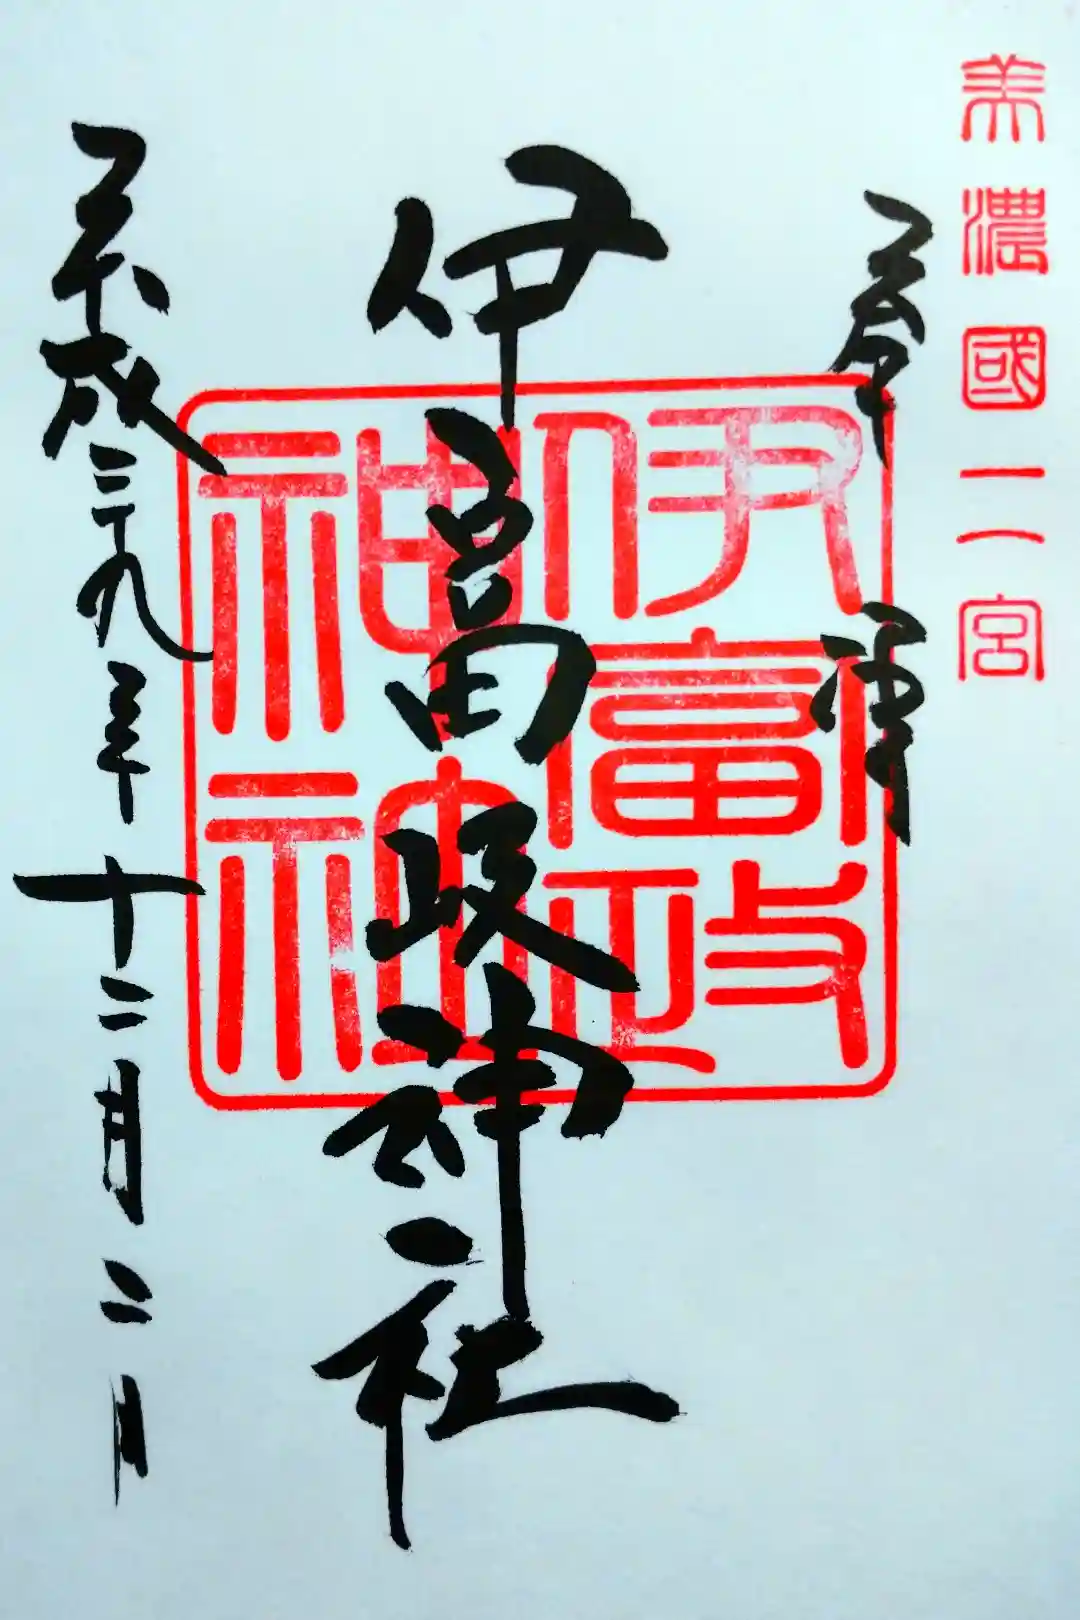 美濃國二宮
奉拝
伊富岐神社
伊富岐
神社
平成二十九年十二月二日